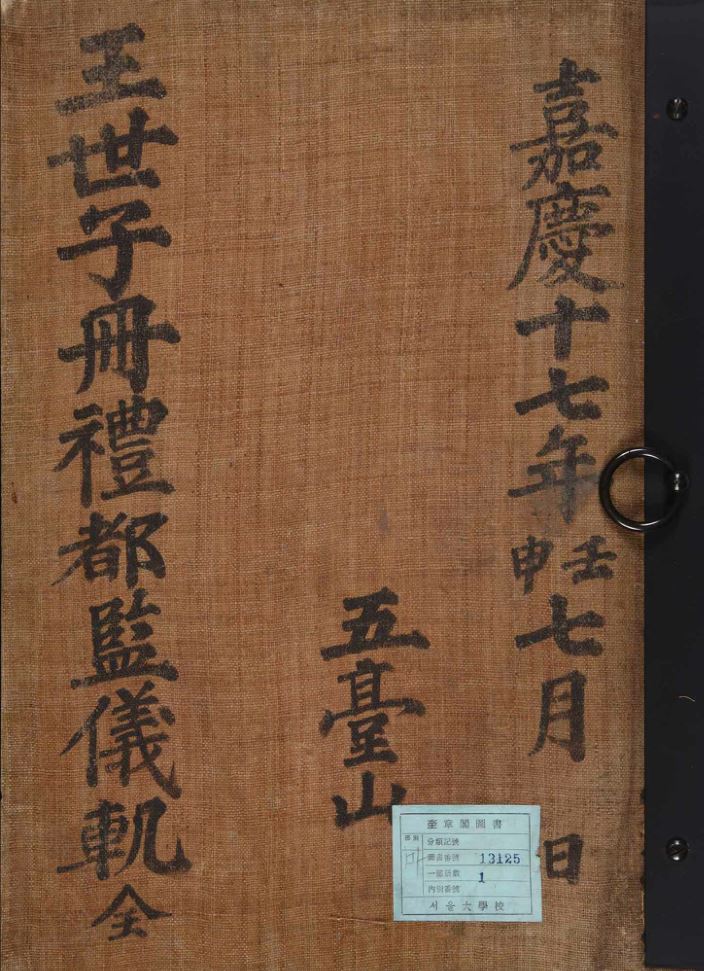 嘉慶十七年壬申七月 日
五臺山
王世子冊禮都監儀軌 全
奎章閣圖書
分類記號
圖書番號 13125
一部冊數 1
內別番號
서울大學校